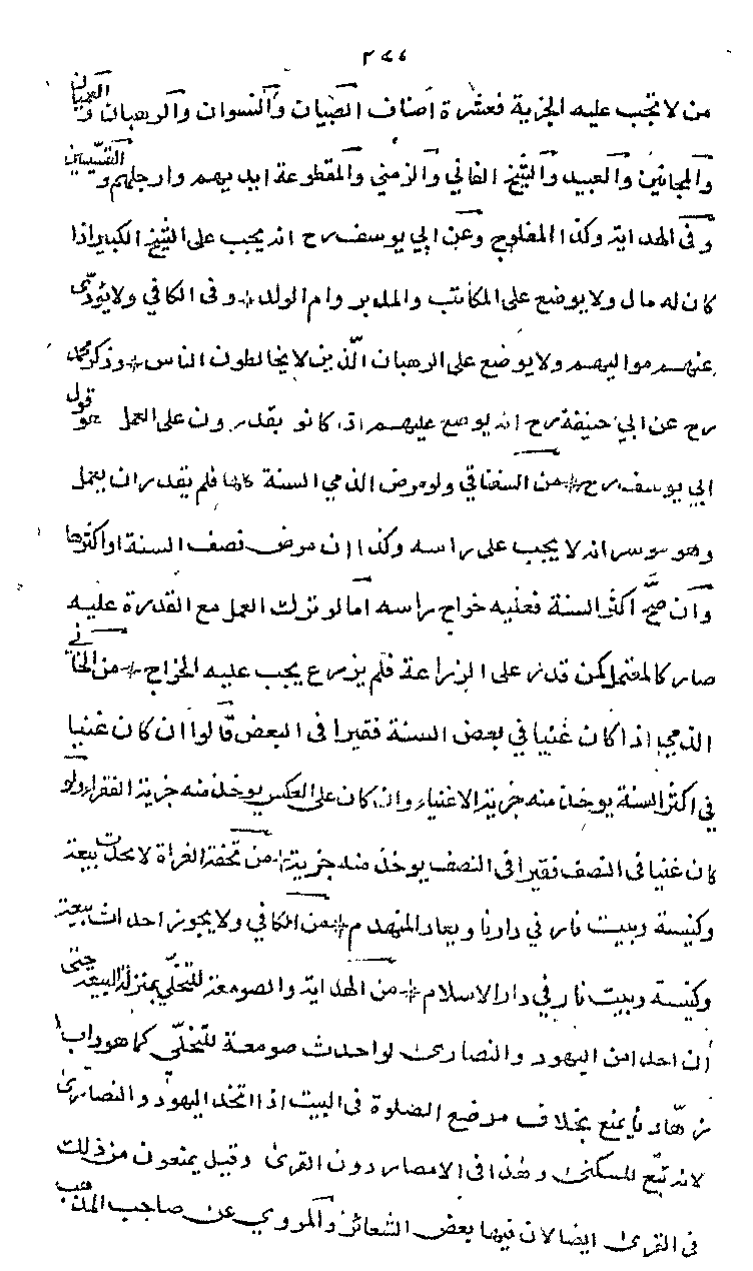 ٢٤٤
من لا تجب عليه الجزية فعشرة اصناف الصبيان والنسوان والرهبان والعميان
والمجانين والعبيد والشيخ الفاني والزمني والمقطوعة ايديهم وارجلهم والقسيسين
وفى الهداية وكذا المفلوج وعن ابي يوسف رح انه يجب على الشيخ الكبير اذا
كان له مال ولا يوضع على المكاتب والمدبر وام الولد وفى الكافي ولا يؤدى
عنهم مواليهم ولا يوضع على الرهبان الذين لا يخالطون الناس وذكر محمد
رح عن ابي حنيفة رح انه يوضع عليهم اذا كانو يقدرون على العمل هو قول
ابي يوسف رح من السغناقي ولو مرض الذمي السنة كلها فلم يقدر ان يعمل
وهو موسر انه لا يجب على راسه وكذا ان مرض نصف السنة او اكثرها
وان صح اكثر السنة فعليه خراج راسه اما لو ترك العمل مع القدرة عليه
صار كالمعتمل كمن قدر على الزراعة فلم يزرع يجب عليه الخراج من الخاني
الذمي اذا كان غنيا في بعض السنة فقيرا فى البعض قالوا ان كان غنيا
في اكثر السنة يوخذ منه جزية الاغنياء وان كان على العكس يوخذ منه جزية الفقراء ولو
كان غنيا فى النصف فقيرا فى النصف يوخذ منه جزية من تحفة الغزاة لا يحدث بيعة
وكنيسة وبيت نار في دارنا ويعاد المنهدم من الكافي ولا يجوز احداث بيعة
وكنيسة وبيت نار في دار الاسلام من الهداية والصومعة للتخلي بمنزلة البيعة حتى
ان احدا من اليهود والنصارى لو احدث صومعة للتخلّي كما هو داب
زهّادنا يمنع بخلاف موضع الصلوة فى البيت اذا اتخذ اليهود والنصارى
لانه تبع للسكنى وهذا فى الامصار دون القرى وقيل يمنعون من ذلك
فى القرى ايضا لان فيها بعض الشعائر والمروي عن صاحب المذهب